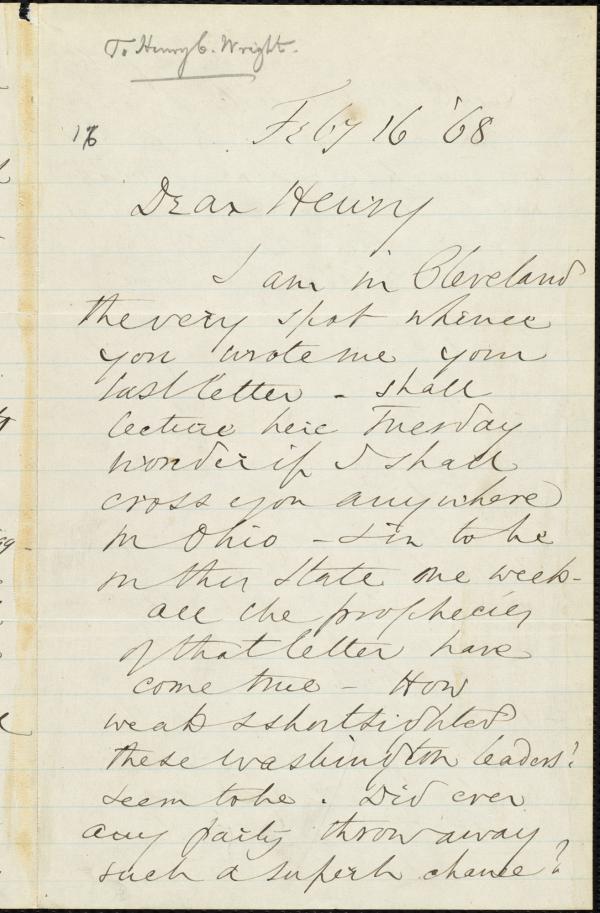 To Henry C. Wright.
Feby 16 '68
Dear Henry
I am in Cleveland
the very spot whence
you wrote me your
last letter - shall
lecture here Tuesday
wonder if I shall
cross you anywhere
in Ohio - to be
in this State one week -
all the prophecies
of that letter have
come true - How
weak & shortsighted
these Washington leaders!
seem to be. Did ever
any party throw away
such a superb chance?